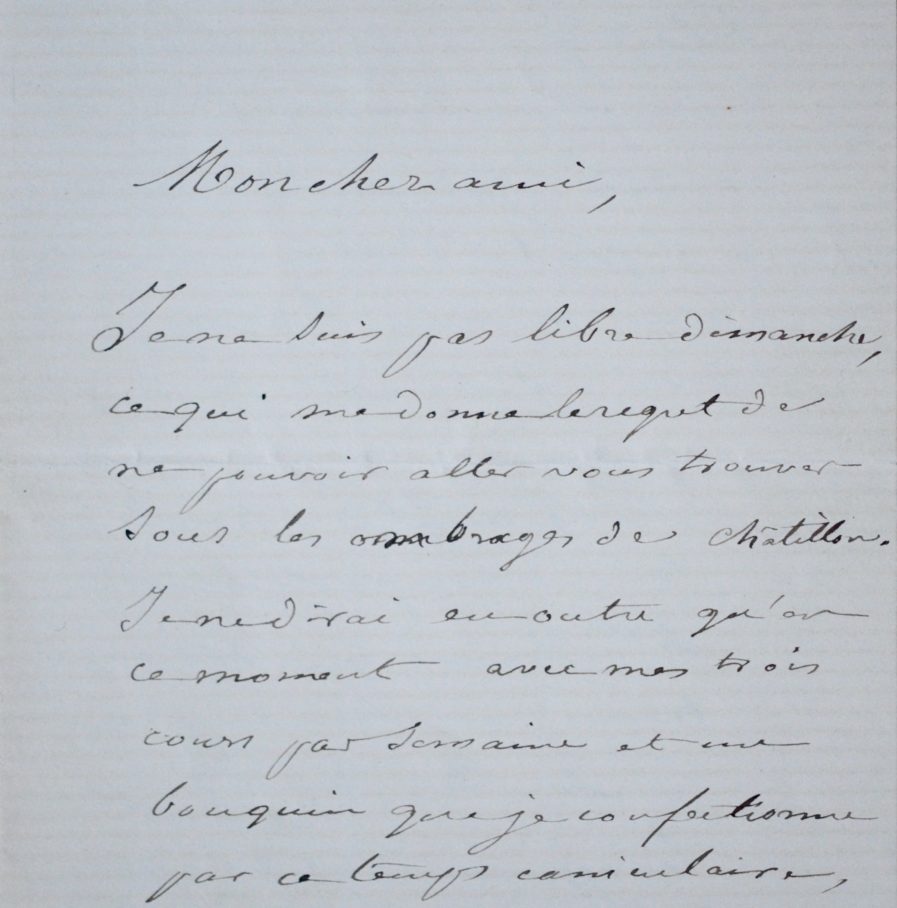 Mon cher ami,
Je ne suis pas libre dimanche,
ce qui me donne le regret de
ne pouvoir aller vous trouver
sous les ombrages de Châtillon.
Je ne dirai en outre qu'en
ce moment avec mes trois
cours par semaine et un
bouquin que je confectionne
par ce temps caniculaire,